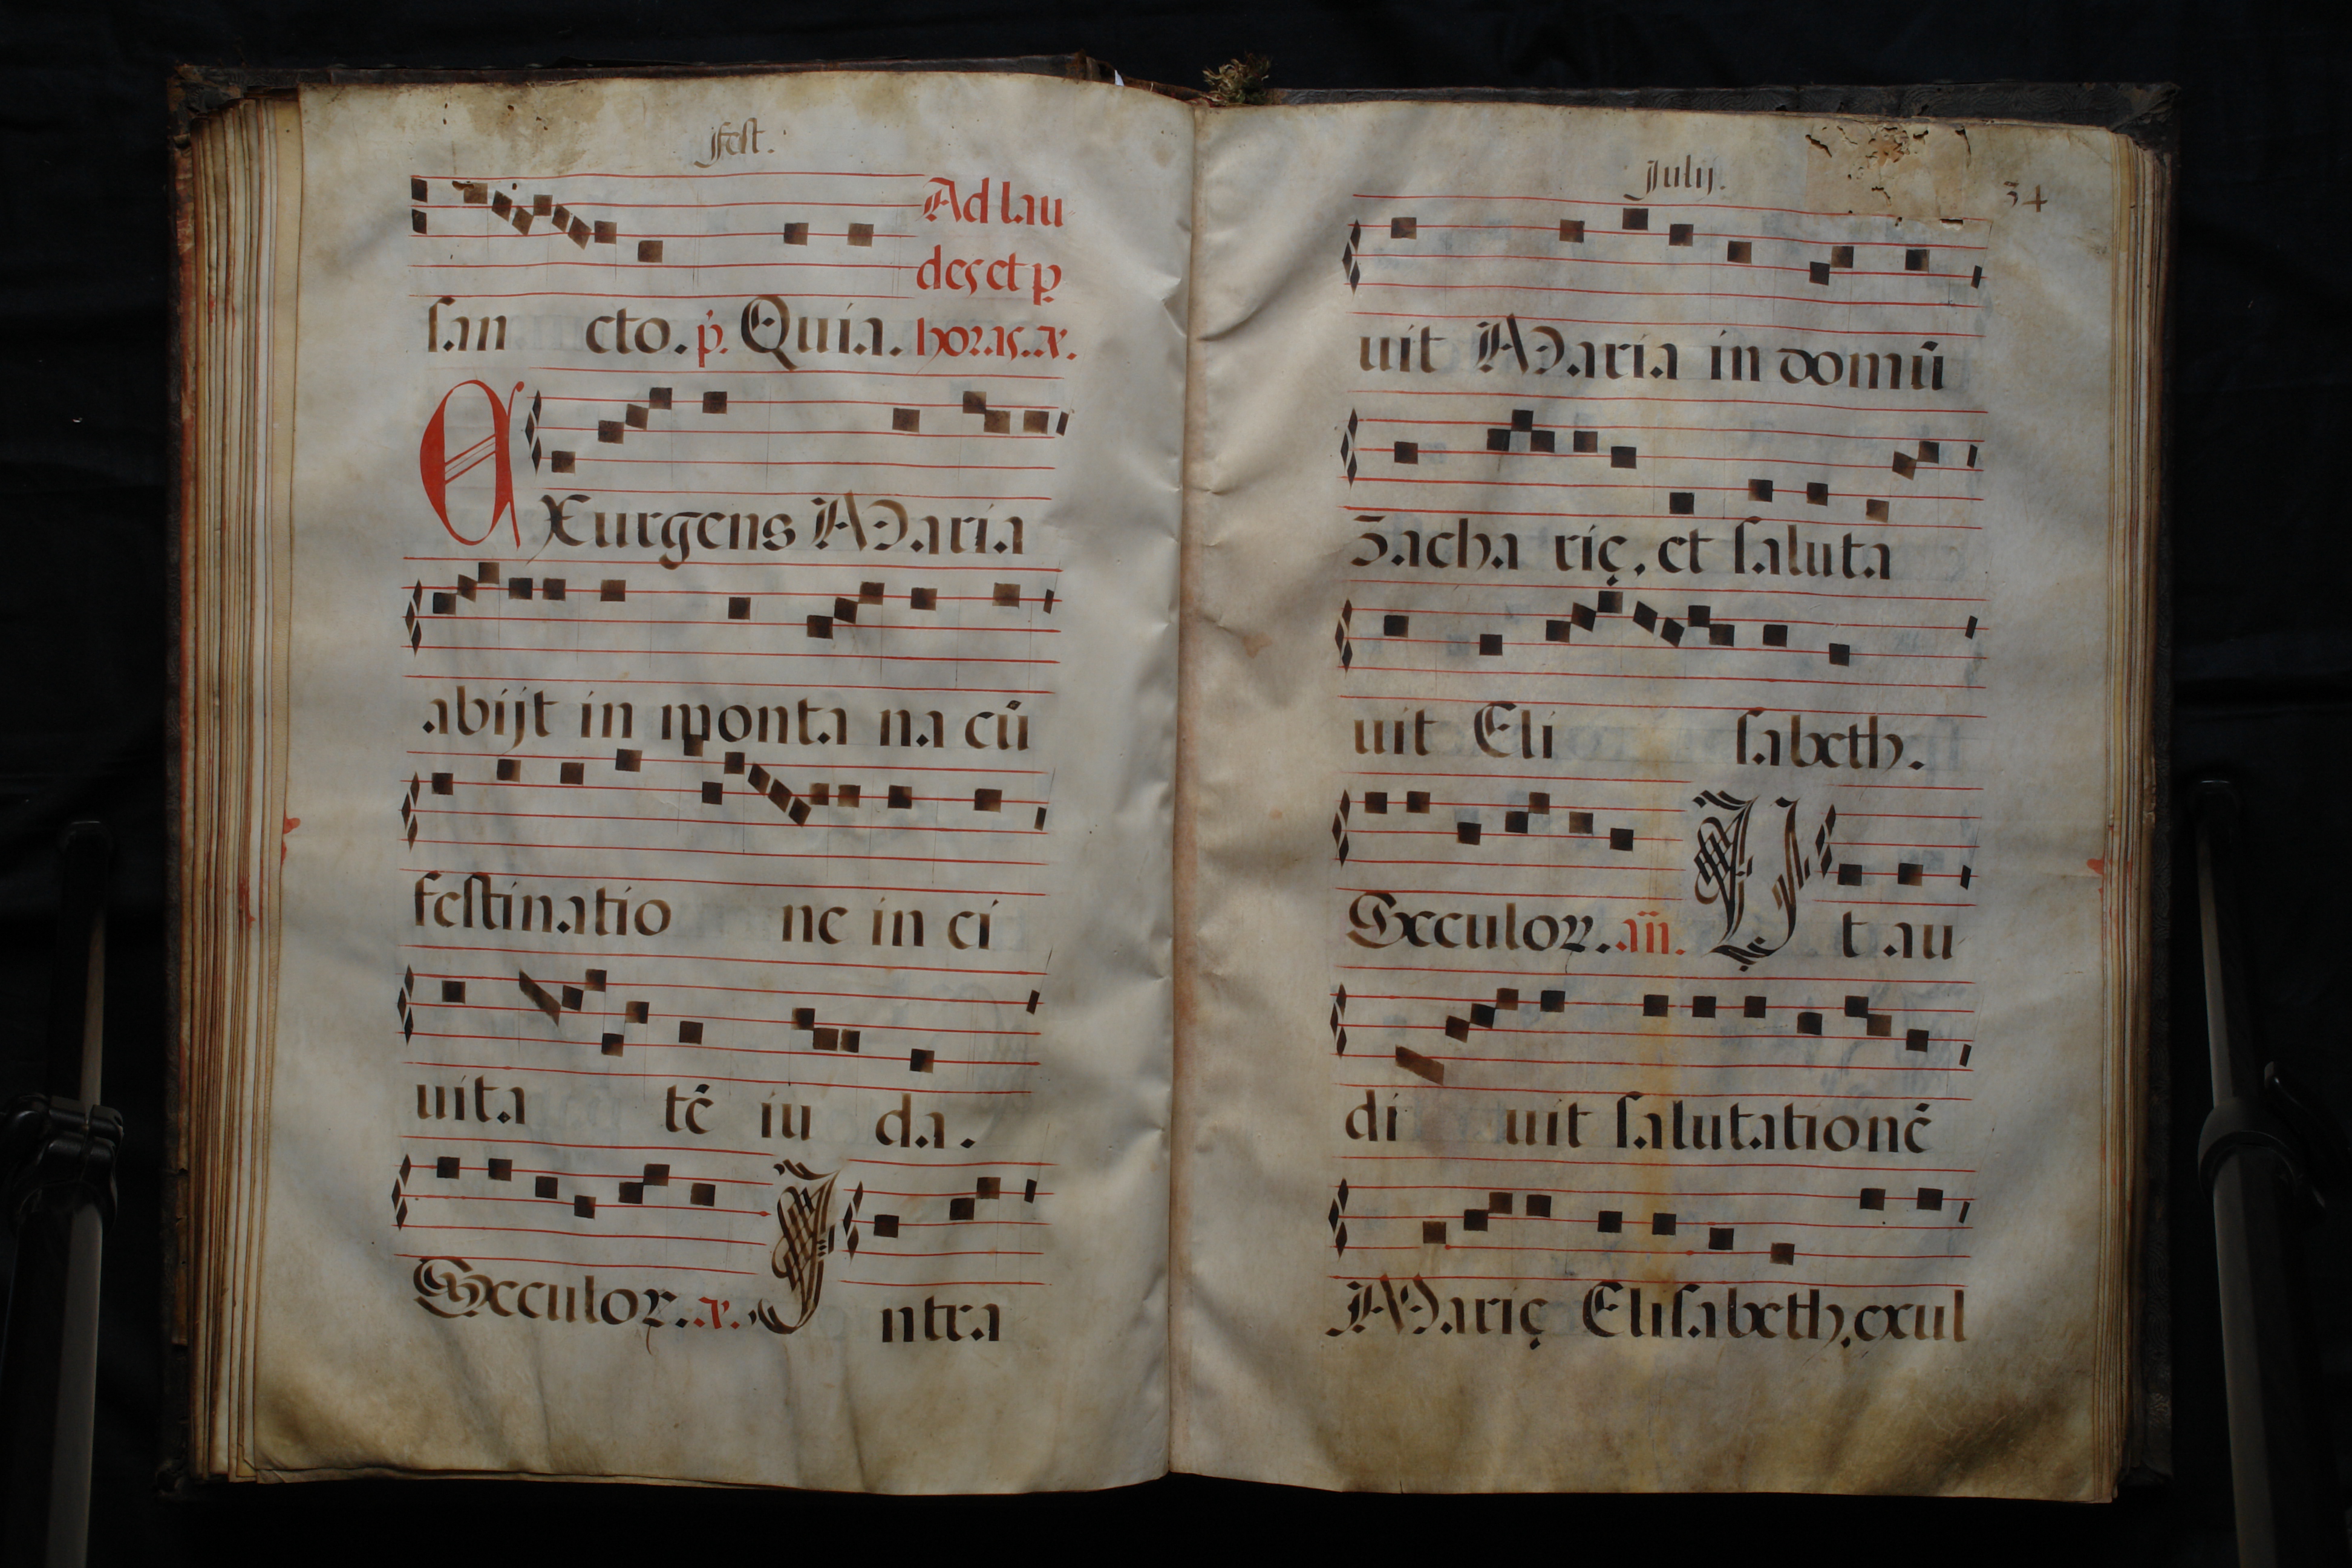 Fest.
Ad lau
des et p
san cto. p. Quia. horas. a.
EXurgens Maria
abijt in monta na cũ
festinatio ne in ci
uita tẽ iu da.
Seculor. a. Intra
Julij.
34
uit Maria in domũ
Zacha rię, et saluta
uit Eli sabeth.
Seculor. añ. Ut au
di uit salutationẽ
Marię Elisabeth, exul